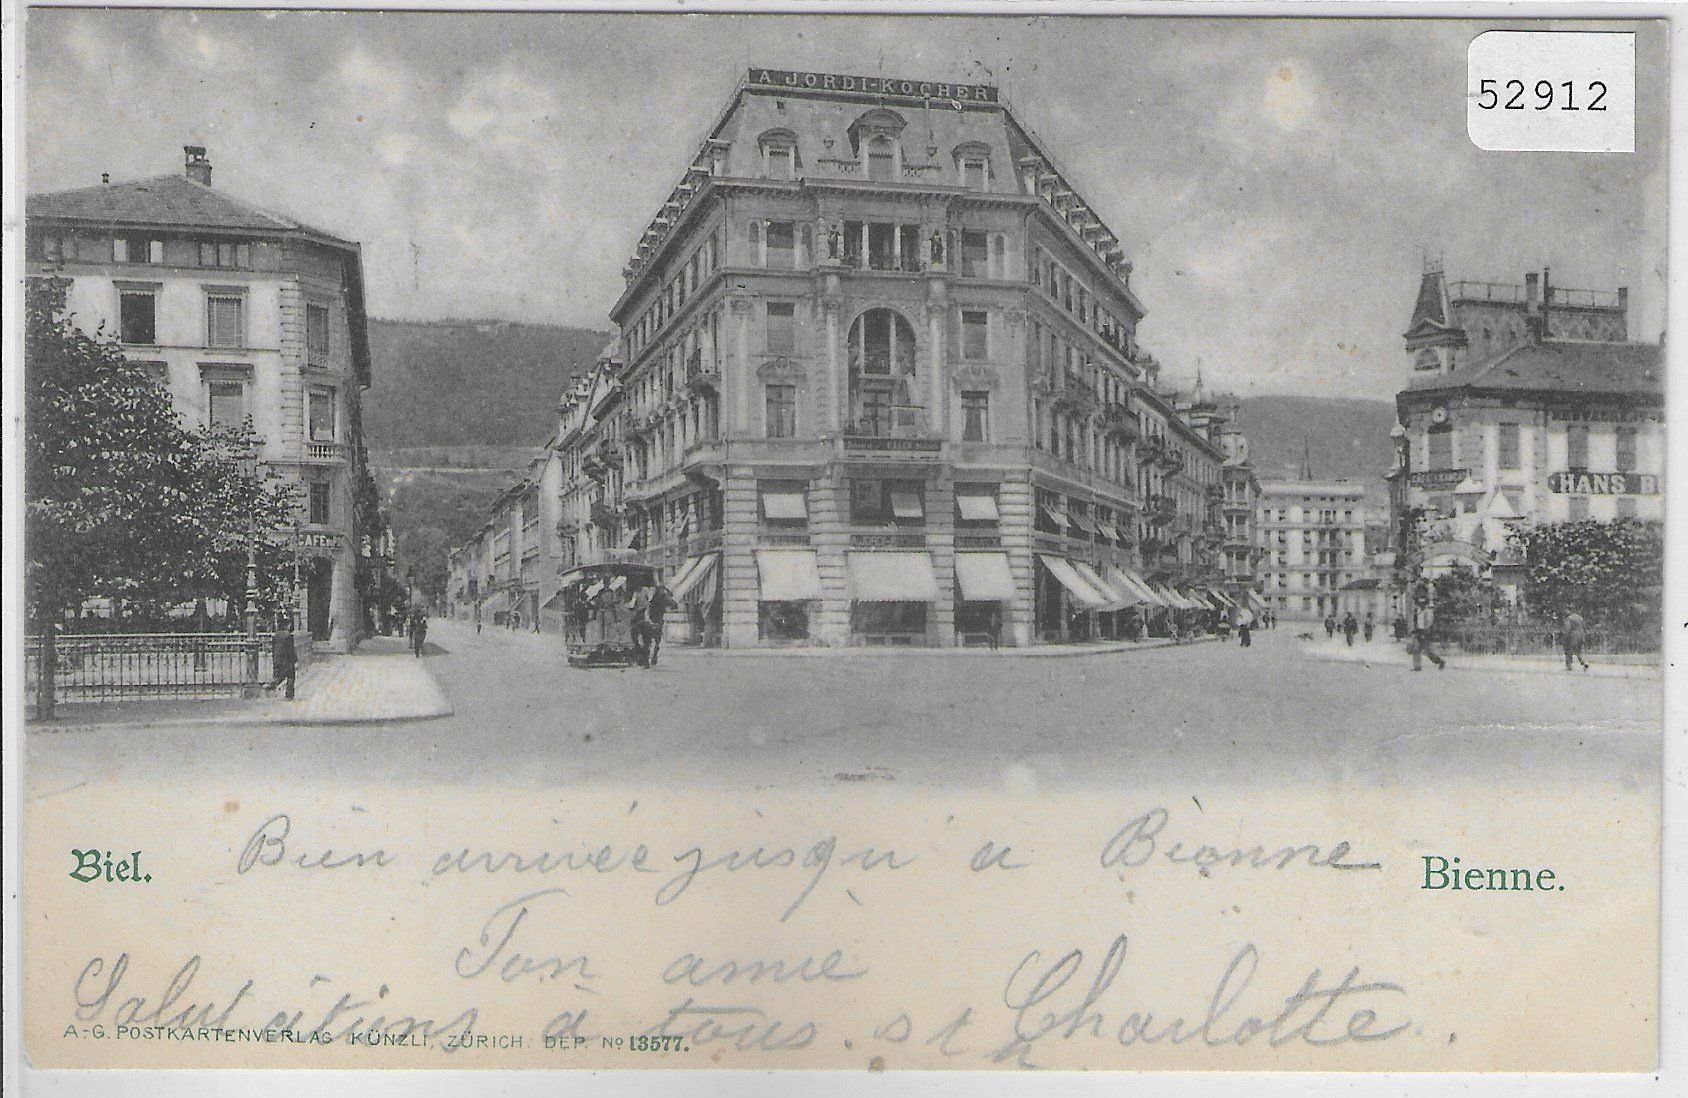 52912
A. JORDI-KOCHER
HANS B
CAFÉ
Biel.
Bien arrivée jusqu'à Bienne
Bienne.
Ton amie
Salutations à tous.
Charlotte.
A.-G. POSTKARTENVERLAG KÜNZLI, ZÜRICH. DEP. No 13577.